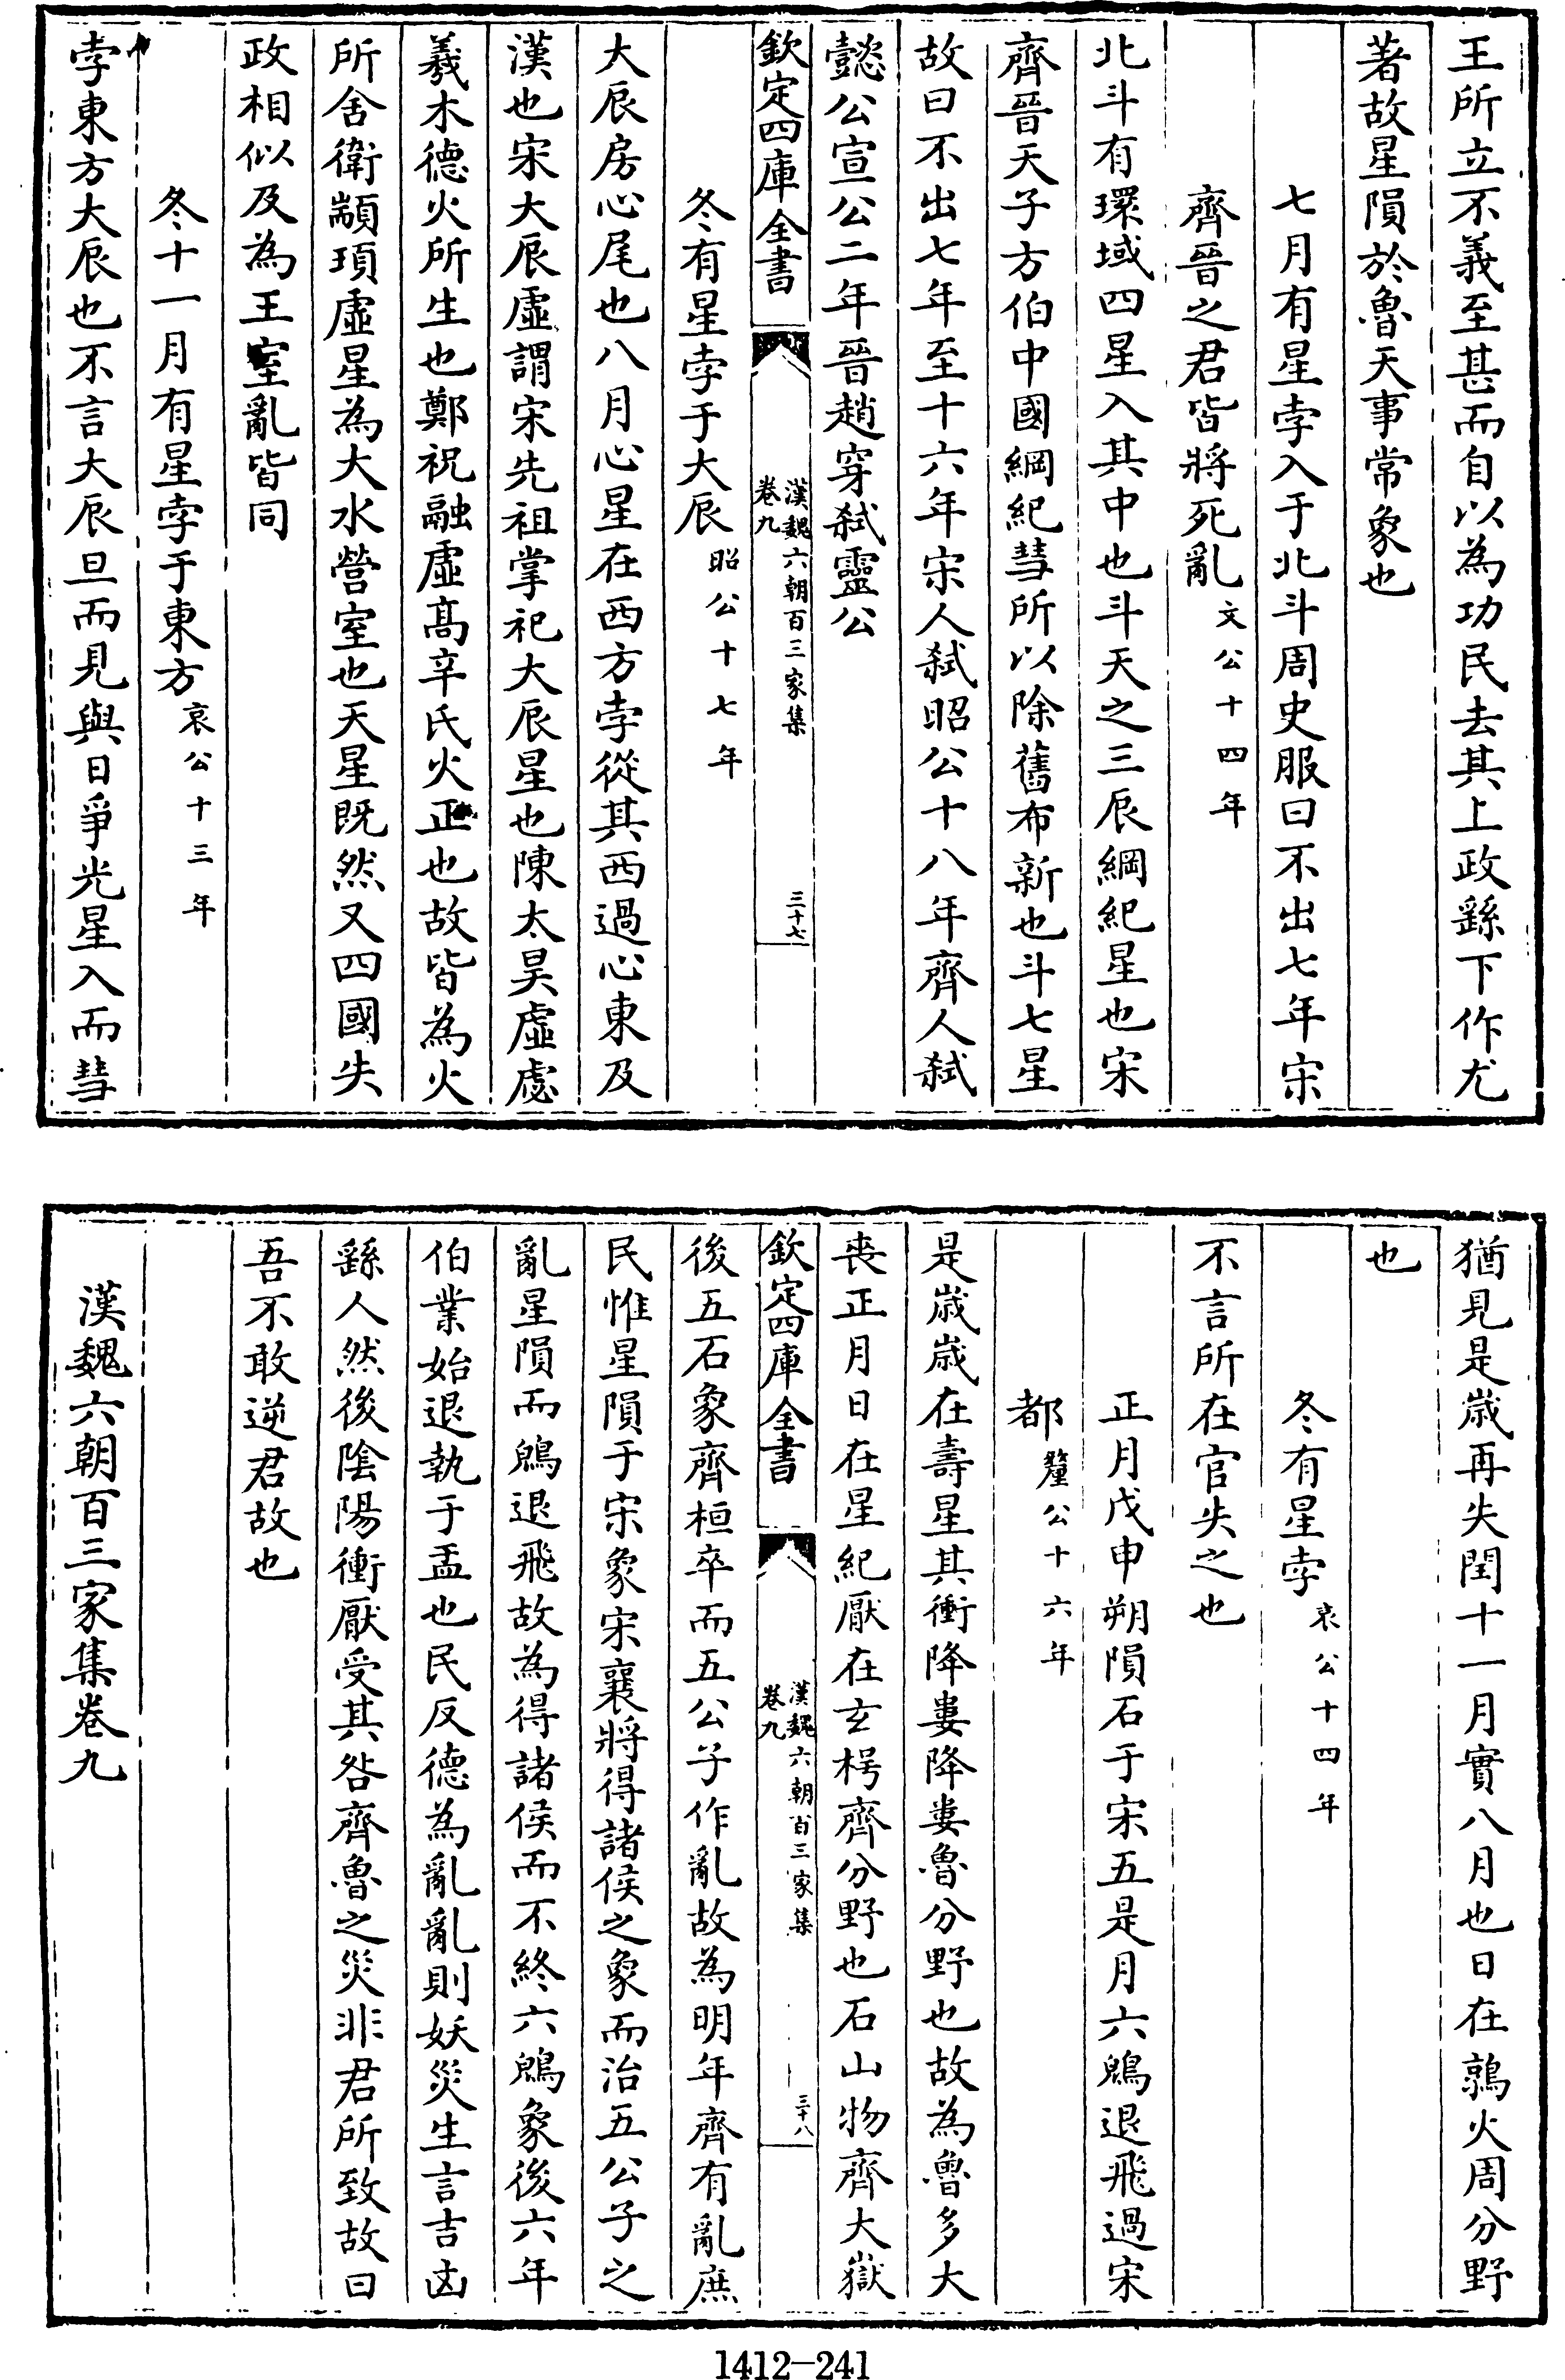 王所立不義至甚而自以為功民去其上政繇下作尤
著故星隕於魯天事常象也
七月有星孛入于北斗周史服曰不出七年宋
齊晉之君皆將死亂文公十四年
北斗有環域四星入其中也斗天之三辰綱紀星也宋
齊晉天子方伯中國綱紀彗所以除舊布新也斗七星
故曰不出七年至十六年宋人弑昭公十八年齊人弑
懿公宣公二年晉趙穿弑靈公
欽定四庫全書 漢魏六朝百三家集 卷九 三十七
冬有星孛于大辰昭公十七年
大辰房心尾也八月心星在西方孛從其西過心東及
漢也宋大辰虛謂宋先祖掌祀大辰星也陳太昊虛虙
羲木德火所生也鄭祝融虛髙辛氏火正也故皆為火
所舍衛顓頊虛星為大水營室也天星既然又四國失
政相似及為王室亂皆同
冬十一月有星孛于東方哀公十三年
孛東方大辰也不言大辰旦而見與日爭光星入而彗
猶見是歲再失閏十一月實八月也日在鶉火周分野
也
冬有星孛哀公十四年
不言所在官失之也
正月戊申朔隕石于宋五是月六鶂退飛過宋
都釐公十六年
是歲歲在壽星其衝降婁降婁魯分野也故為魯多大
喪正月日在星紀厭在玄枵齊分野也石山物齊大嶽
欽定四庫全書 漢魏六朝百三家集 卷九 三十八
後五石象齊桓卒而五公子作亂故為明年齊有亂庶
民惟星隕于宋象宋襄將得諸侯之象而治五公子之
亂星隕而鶂退飛故為得諸侯而不終六鶂象後六年
伯業始退執于盂也民反德為亂亂則妖災生言吉凶
繇人然後陰陽衝厭受其咎齊魯之災非君所致故曰
吾不敢逆君故也
漢魏六朝百三家集卷九
1412-241